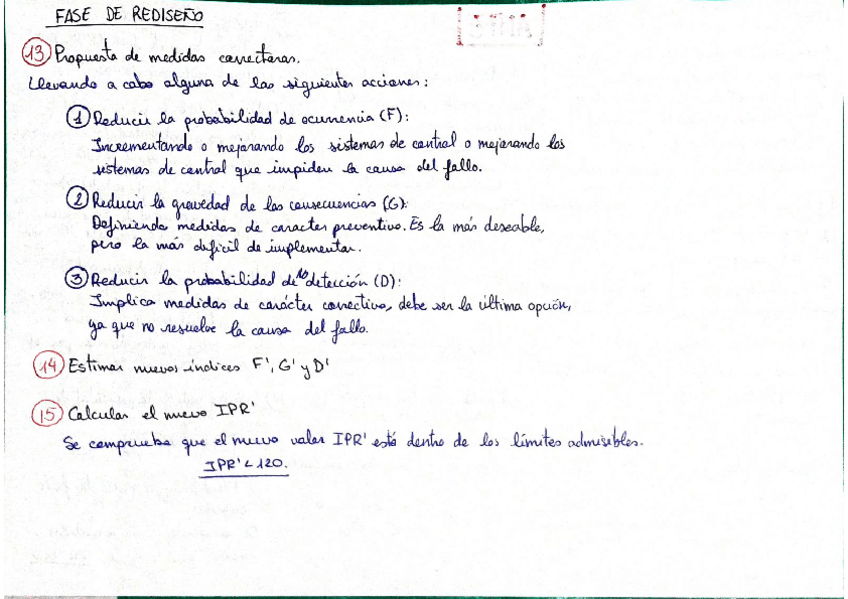 FASE DE REDISEÑO
13 Propuesta de medidas correctoras.
Llevando a cabo alguna de las siguientes acciones:
1 Reducir la probabilidad de ocurrencia (F):
Incrementando o mejorando los sistemas de control o mejorando los
sistemas de control que impiden la causa del fallo.
2 Reducir la gravedad de las consecuencias (G):
Definiendo medidas de caracter preventivo. Es la más deseable,
pero la más dificil de implementar.
3 Reducir la probabilidad de NO detección (D):
Implica medidas de carácter correctivo, debe ser la última opción,
ya que no resuelve la causa del fallo.
14 Estimar nuevos índices F', G' y D'
15 Calcular el nuevo IPR'
Se comprueba que el nuevo valor IPR' está dentro de los límites admisibles.
IPR' < 120.